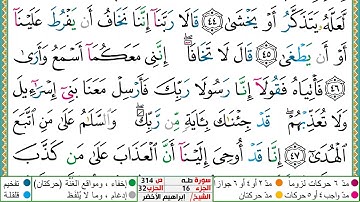 لَّعَلَّهُۥ يَتَذَكَّرُ أَوْ يَخْشَىٰ ٤٤ قَالَا رَبَّنَآ إِنَّنَا نَخَافُ أَن يَفْرُطَ عَلَيْنَآ
أَوْ أَن يَطْغَىٰ ٤٥ قَالَ لَا تَخَافَآ ۖ إِنَّنِى مَعَكُمَآ أَسْمَعُ وَأَرَىٰ
٤٦ فَأْتِيَاهُ فَقُولَآ إِنَّا رَسُولَا رَبِّكَ فَأَرْسِلْ مَعَنَا بَنِىٓ إِسْرَٰٓءِيلَ
وَلَا تُعَذِّبْهُمْ ۖ قَدْ جِئْنَٰكَ بِـَٔايَةٍ مِّن رَّبِّكَ ۖ وَٱلسَّلَٰمُ عَلَىٰ مَنِ ٱتَّبَعَ
ٱلْهُدَىٰٓ ٤٧ إِنَّا قَدْ أُوحِىَ إِلَيْنَآ أَنَّ ٱلْعَذَابَ عَلَىٰ مَن كَذَّبَ
مدّ ٦ حركات لزوماً مدّ ٢ أو ٤ أو ٦ جوازاً
مدّ واجب ٤ أو ٥ حركات مدّ حركتان
سورة طه ص 314
الجزء 16 الحزب 32
الشيخ/ إبراهيم الأخضر
إخفاء، ومواقع الغُنَّة (حركتان)
إدغام، وما لا يُلفَظ
تفخيم
قلقلة